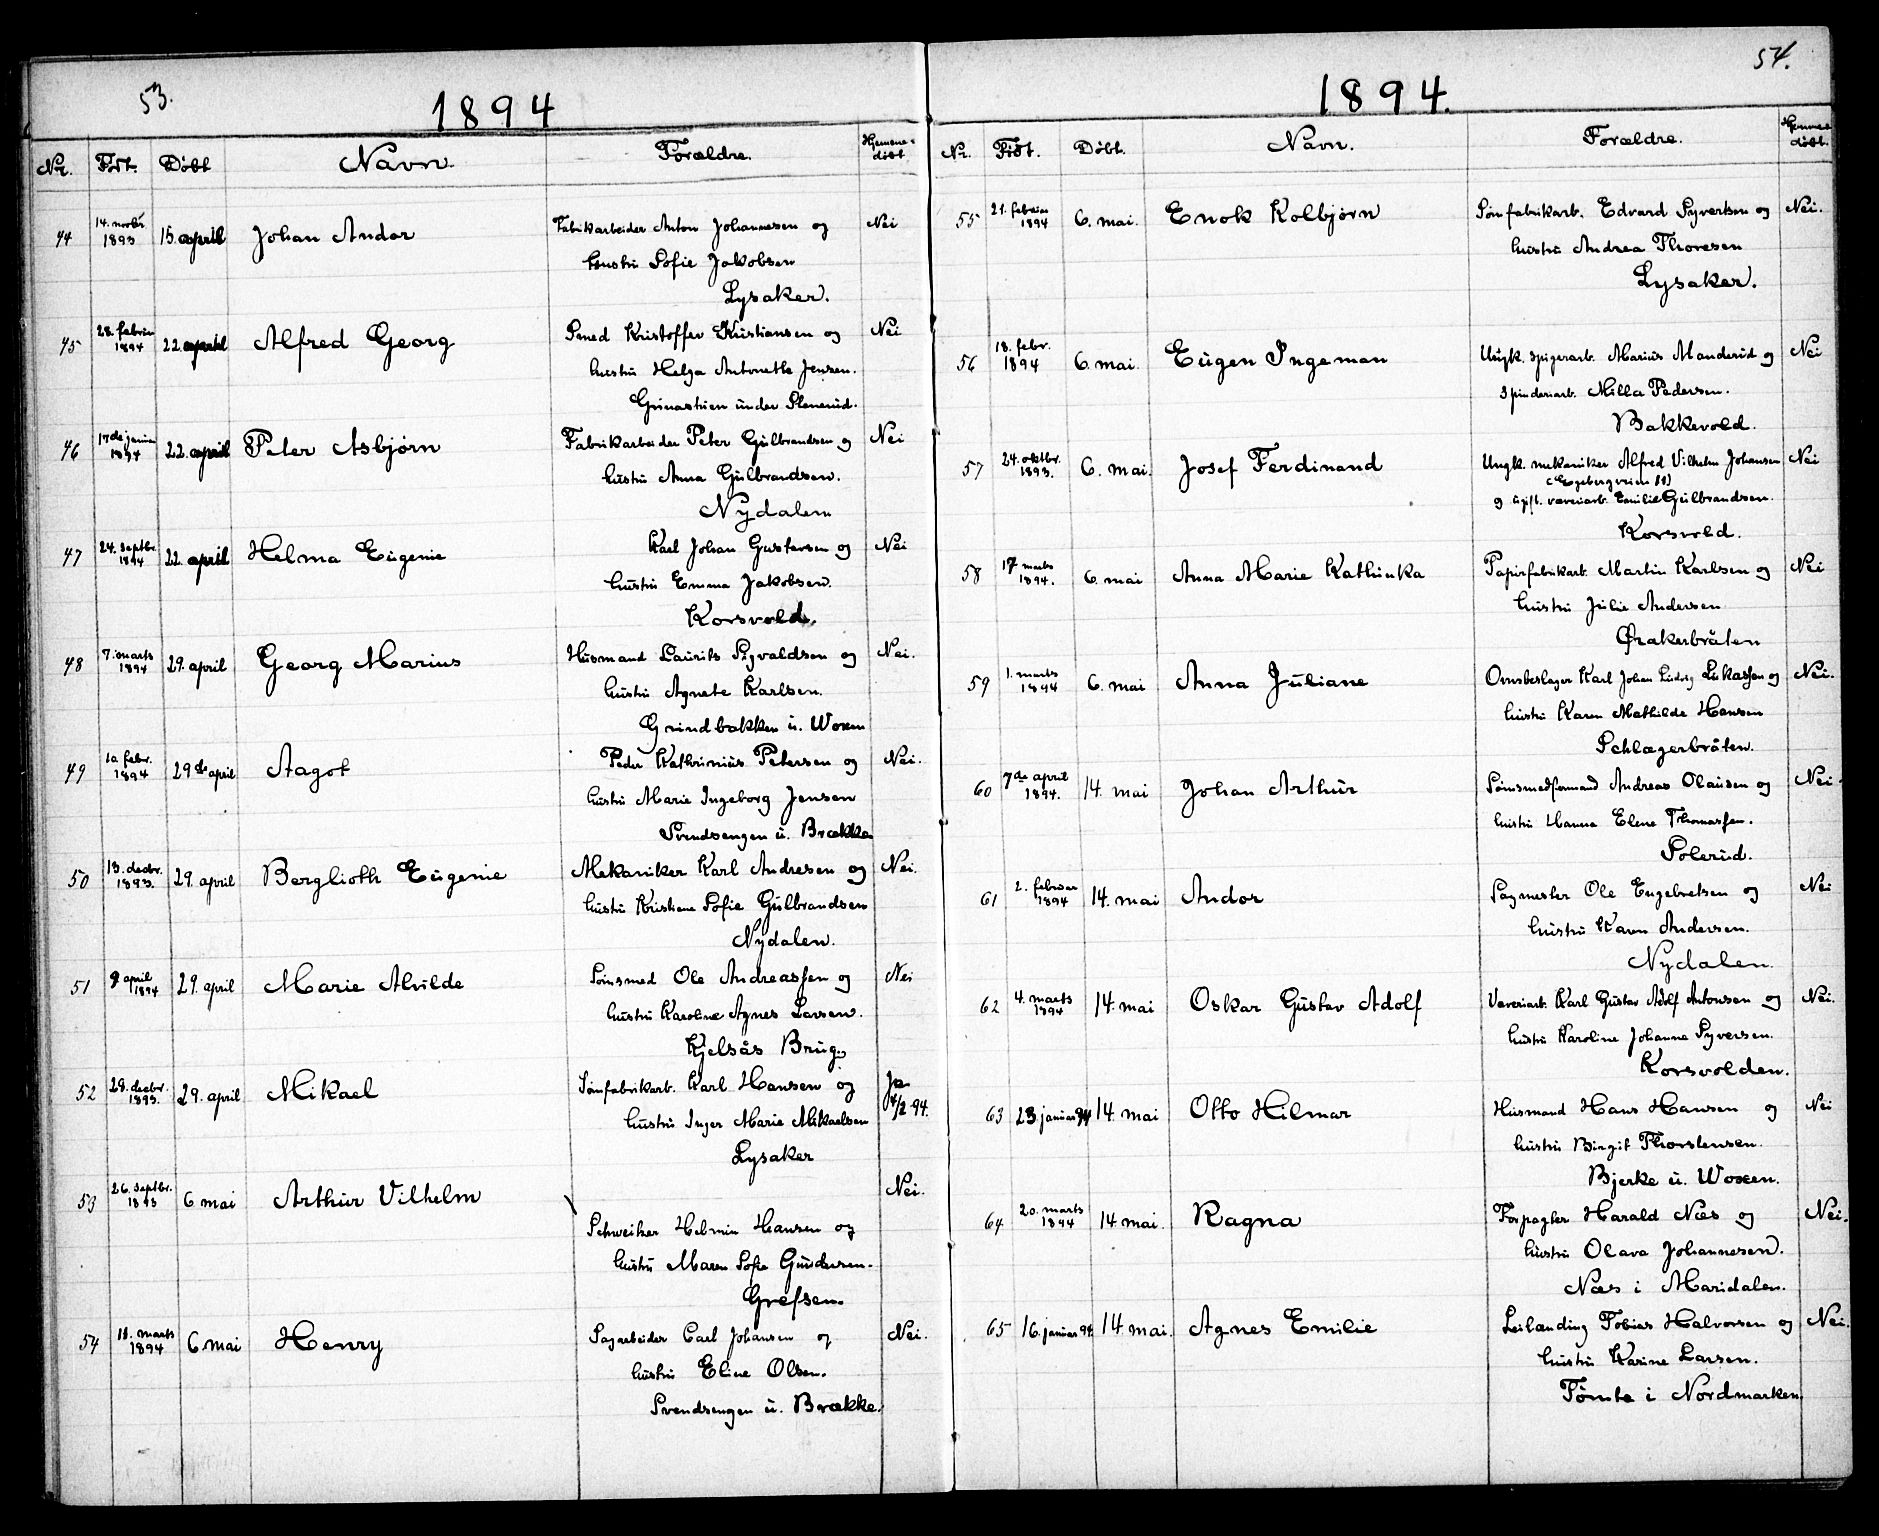 53.
1894
Nr. Født. Døbt Navn. Forældre. Hjemme-døbt
44 14. novbr 1893 15. april Johan Andor Fabrikarbeider Anton Johannesen og Nei
hustru Sofie Jakobsen
Lysaker.
45 28. februar 1894 22. april Alfred Georg Smed Kristoffer Kristiansen og Nei
hustru Helga Antonette Jensen.
under
46 17de januar 1894 22. april Peter Asbjørn Fabrikarbeider Peter Gulbrandsen og Nei
hustru Anna Gulbrandsen.
Nydalen
47 24. septbr. 1894 22. april Helma Eugenie Karl Johan Gustavsen og Nei
hustru Emma Jakobsen.
Korsvold.
48 7. marts 1894 29. april Georg Marius Husmand Laurits Sigvaldsen og Nei.
hustru Agnete Karlsen.
Grindbakken u. Woxen
49 10 febr. 1894 29de april Aagot Peder Kathrinius Petersen og Nei.
hustru Marie Ingeborg Jensen
Svendsengen u. Brække
50 13. decbr. 1893. 29. april Berglioth Eugenie Mekaniker Karl Andresen og Nei.
hustru Kristiane Sofie Gulbrandsen
Nydalen.
51 9 april 1894 29. april Marie Alvilde Sømsmed Ole Andreassen og Nei
hustru Karoline Agnes Larsen.
Kjelsås Brug.
52 28. decbr. 1893. 29. april Mikael Sømfabrikarb. Karl Hansen og Ja 4/2 94.
hustru Inger Marie Mikaelsen
Lysaker
53 26. septbr. 1893 6 mai Arthur Vilhelm Nei.
Schweitser Helmin Hansen og
hustru Maren Sofie Gundersen.
Grefsen.
54 11. marts 1894 6. mai Henry Sagarbeider Carl Johansen og Nei.
hustru Eline Olsen.
Svendsengen u. Brække.
54.
1894.
Nr. Født. Døbt. Navn. Forældre. Hjemme-døbt.
55 21. februar 1894 6. mai. Enok Kolbjørn Sømfabrikarb. Edvard Syvertsen og Nei.
hustru Andrea Thoresen
Lysaker.
56 18. febr. 1894 6. mai. Eugen Ingeman Ungk. spigerarb. Marius Manderud og Nei
spinderiarb. Milla Pedersen.
Bakkevold.
57 24. oktbr. 1893. 6. mai. Josef Ferdinand Ungk. mekaniker Alfred Vilhelm Johansen Nei
(Egebergveien 11)
og ugift. væveriarb. Emilie Gulbrandsen.
Korsvold.
58 17 marts 1894. 6. mai Anna Marie Kathinka Papirfabrikarb. Martin Karlsen og Nei
hustru Julie Andersen
Ørakerbråten
59 1. marts 1894 6. mai Anna Juliane Ovnsbeslager Karl Johan Ludvig Lukassen og Nei.
hustru Karen Mathilde Hansen
Schlagerbråten.
60 7de april 1894. 14. mai Johan Arthur Sømsmedformand Andreas Olausen og Nei.
hustru Hanna Elene Thomassen.
Solerud.
61 2. februar 1894 14. mai Andor Sagmester Ole Engebretsen og Nei
hustru Karen Andersen.
Nydalen.
62 4. marts 1894 14. mai Oskar Gustav Adolf Væveriarb. Karl Gustav Adolf Antonsen og Nei.
hustru Karoline Johanne Syversen.
Korsvolden.
63 23 januar 94 14. mai Otto Hilmar Husmand Hans Hansen og Nei
hustru Birgit Thorstensen.
Bjerke u. Woxen.
64 20. marts 1894 14 mai. Ragna Forpagter Harald Næs og Nei.
hustru Olava Johannesen.
Næs i Maridalen.
65 16. januar 94. 14 mai. Agnes Emilie Leilænding Tobias Halvorsen og Nei.
hustru Karine Larsen.
Tømte i Nordmarken.